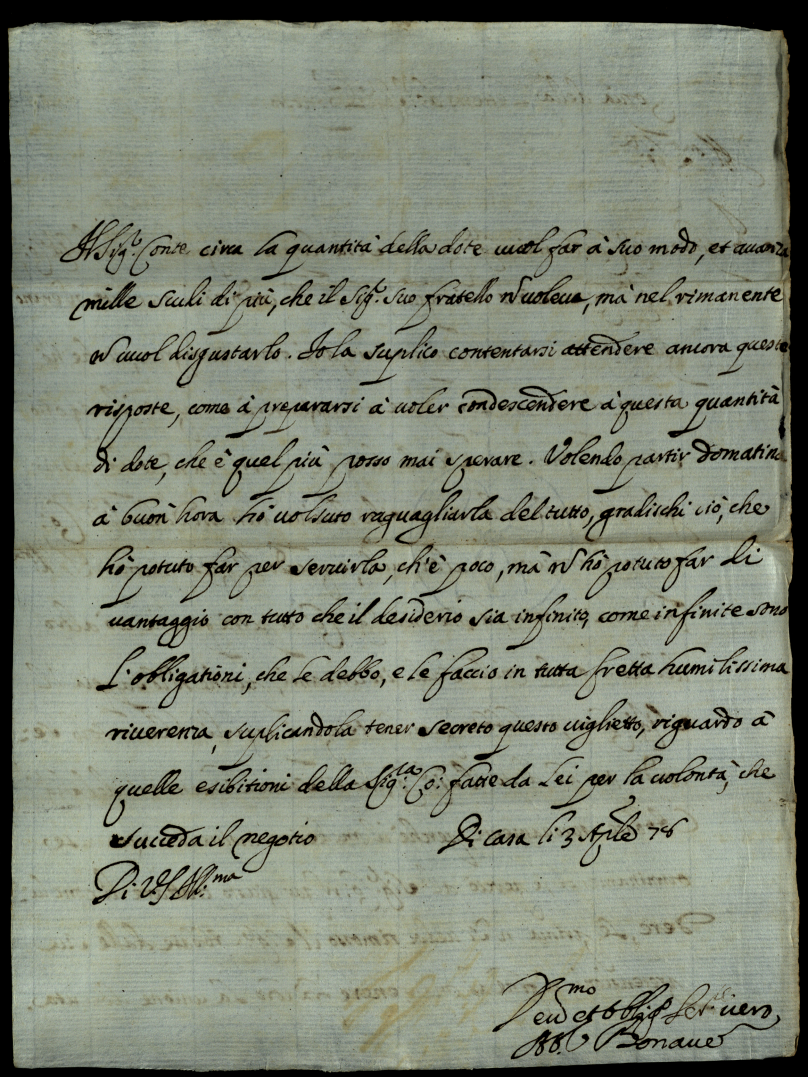 Il Sig.r Conte circa la quantità della dote vuol far à suo modo, et avanza
mille scudi di più, che il Sig.r suo fratello ñ voleva, mà nel rimanente
ñ vuol disgustarlo. Io la suplico contentarsi attendere ancora queste
risposte, come à prepararsi à voler condescendere à questa quantità
di dote, che è quel più posso mai sperare. Volendo partir domatina
à buon' hora hò volsuto raguagliarla del tutto, gradischi ciò, che
hò potuto far per servirla, ch'è poco, mà ñ hò potuto far di
vantaggio con tutto che il desiderio sia infinito, come infinite sono
l'obligationi, che le debbo, e le faccio in tutta fretta humilissima
riverenza, suplicandola tener secreto questo viglietto, riguardo à
quelle esibitioni della Sig.ra Co: fatte da Lei per la volontà, che
succeda il negotio Di casa li 3 Aple 78
Di V.S. Ill.ma
Dev.mo et oblig.o Ser.e vero
Bonave